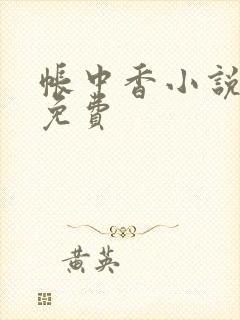 帳中香小說
免費
黃英